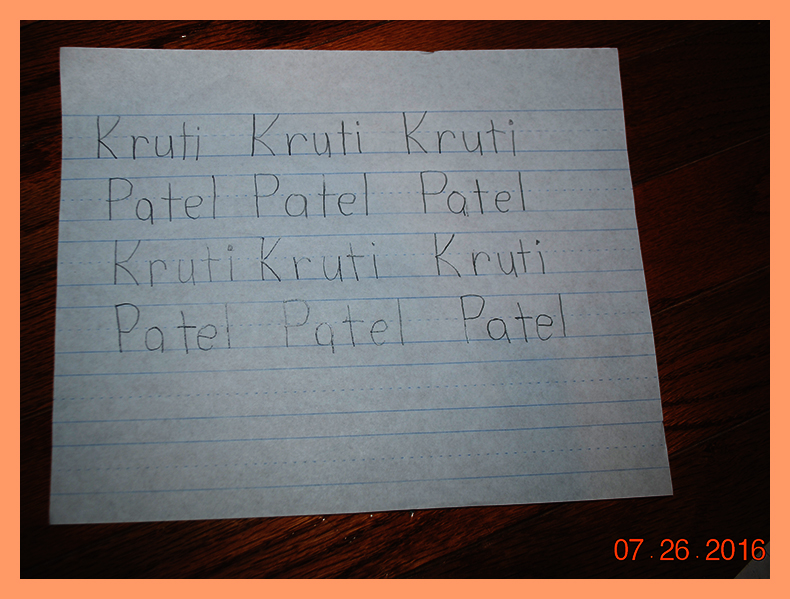 Kruti Kruti Kruti
Patel Patel Patel
Kruti Kruti Kruti
Patel Patel Patel
07.26.2016